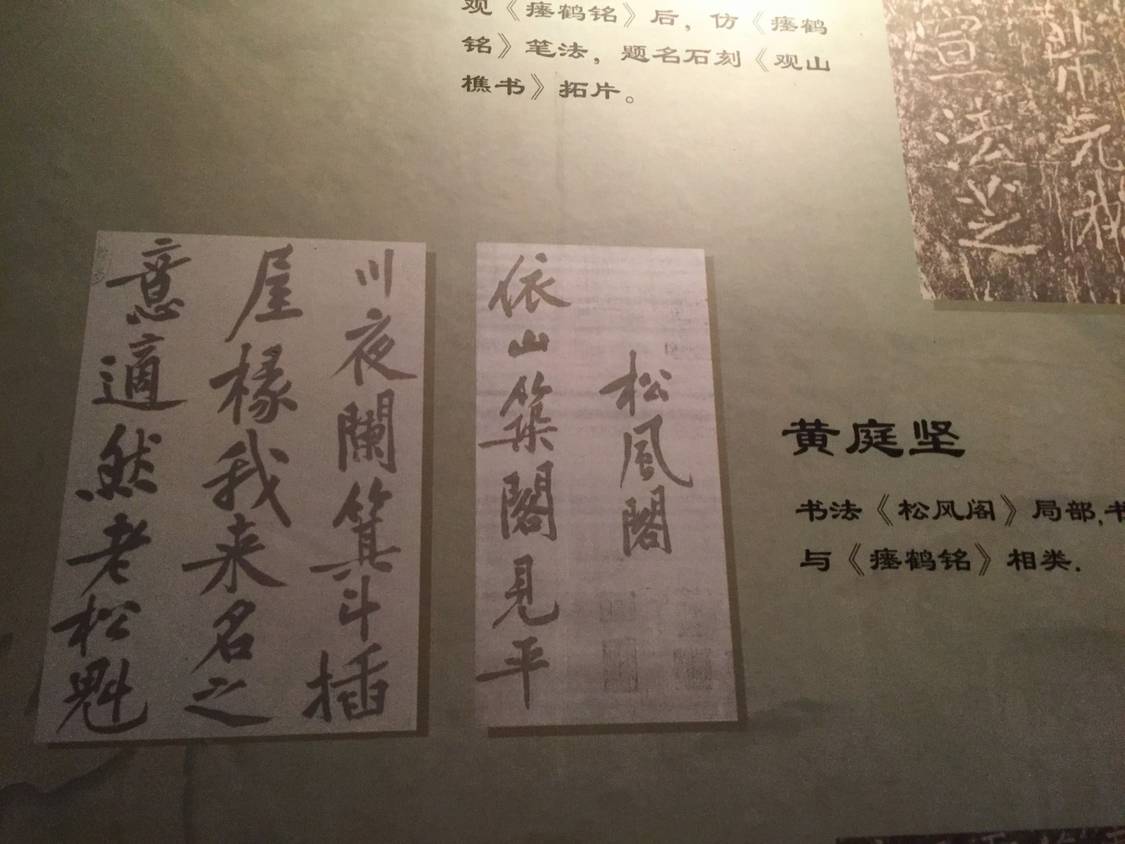 观《瘗鹤铭》后，仿《瘗鹤
铭》笔法，题名石刻《观山
樵书》拓片。
松風閣
依山築閣見平
川夜闌箕斗插
屋椽我来名之
意適然老松魁
黄庭坚
书法《松风阁》局部,书
与《瘗鹤铭》相类.